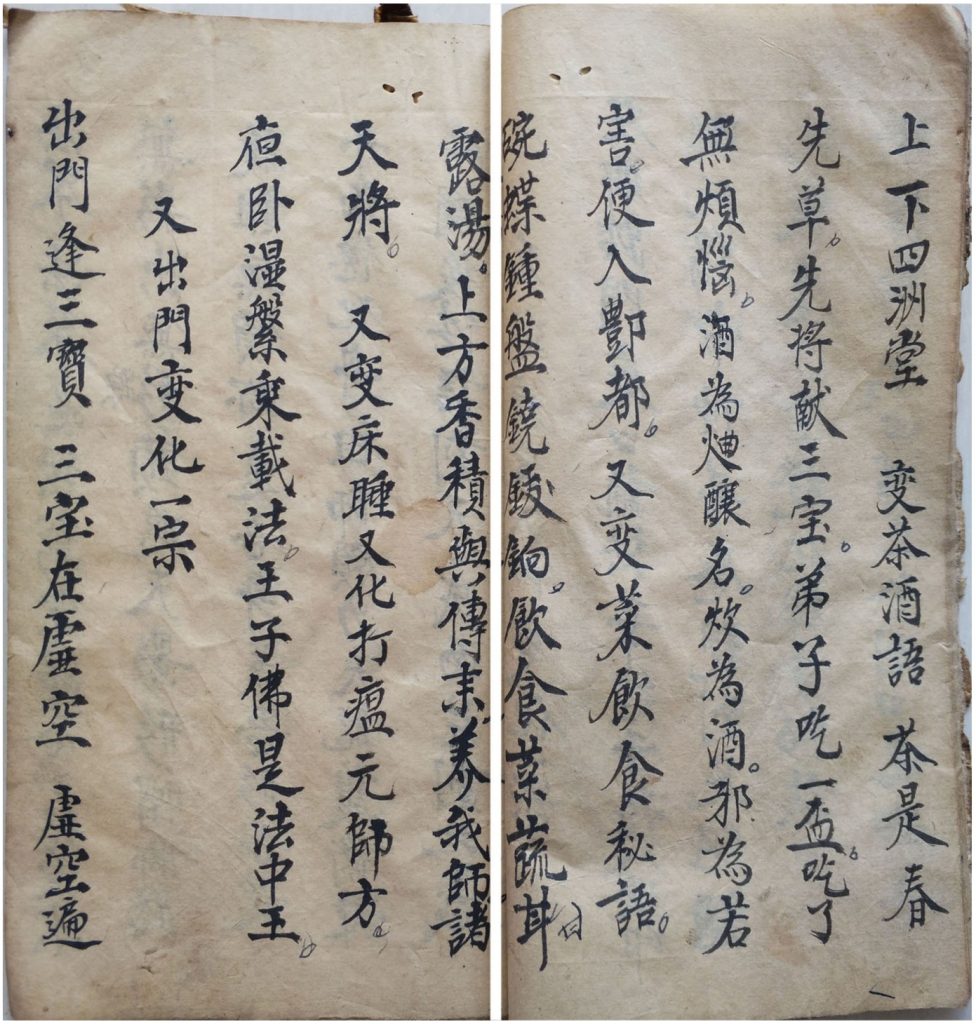 上下四洲堂 变茶酒語 茶是春
先草。先将献三宝。弟子吃一盃。吃了
無煩惱。酒為 釀名。炊為酒。邪為若
害。便入酆都。又变菜飲食秘語。
碗碟鍾盤鐃鈸 。飲食菜蔬甘
露湯。上方香積與傳来。养我師諸
天將。 又变床睡又化打瘟元師方。
夜卧湿槃乘載法。王子佛是法中王。
又出門变化一宗
出門逢三寶 三宝在虚空 虚空遍